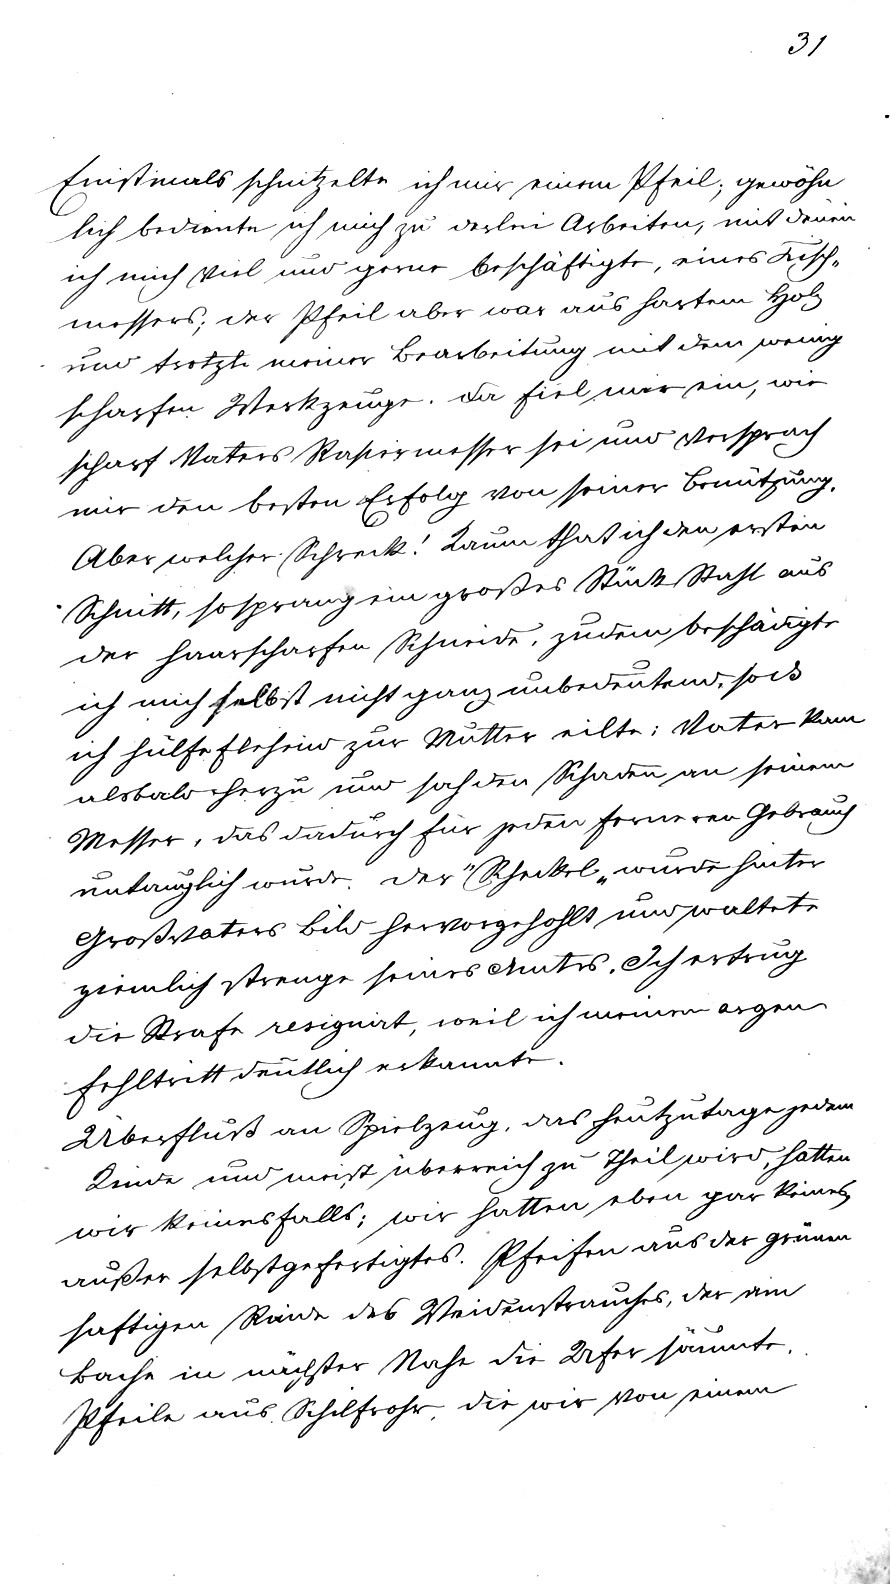 31
Einstmals schnitzelte ich mir einen Pfeil; gewöhn
lich bediente ich mich zu derlei Arbeiten, mit denen
ich mich viel und gerne beschäftigte, eines Tisch„
messers; der Pfeil aber war aus hartem Holz
und trotzte meiner Bearbeitung mit dem wenig
scharfen Werkzeuge. Da fiel mir ein, wie
scharf Vaters Rasiermesser sei und versprach
mir den besten Erfolg von seiner Benützung.
Aber welcher Schreck! Kaum that ich den ersten
Schnitt, so sprang ein großes Stück Stahl aus
der haarscharfen Schneide, zudem beschädigte
ich mich selbst nicht ganz unbedeutend, so daß
ich hülfeflehend zur Mutter eilte; Vater kam
alsbald herzu und sah den Schaden an seinem
Messer, das dadurch für jeden ferneren Gebrauch
untauglich wurde. Der "Scheckel„ wurde hinter
Großvaters Bild hervorgehohlt und waltete
ziemlich strenge seines Amtes. Ich ertrug
die Strafe resignirt, weil ich meinen argen
Fehltritt deutlich erkannte.
Überfluß an Spielzeug, das heutzutage jedem
Kinde und meist überreich zu Theil wird, hatten
wir keinesfalls; wir hatten eben gar keines
außer selbstgefertigtes. Pfeifen aus der grünen
saftigen Rinde des Weidenstrauches, der am
Bache in nächster Nähe die Ufer säumte,
Pfeile aus Schilfrohr, die wir von einem